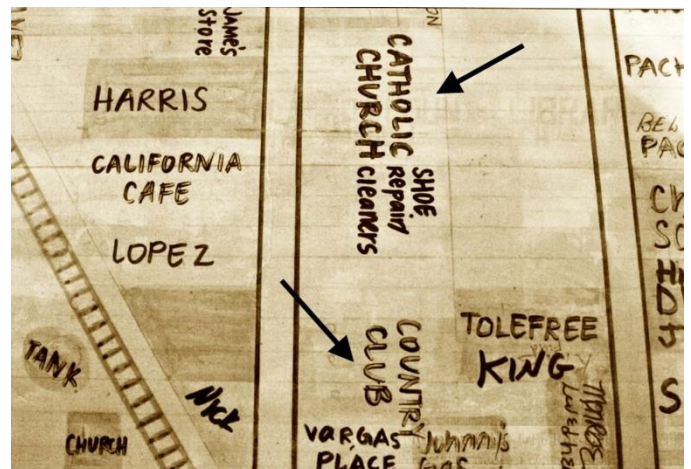 James
Store
HARRIS
CALIFORNIA
CAFE
LOPEZ
TANK
NICK
CHURCH
CATHOLIC
CHURCH
SHOE
Repair
Cleaners
COUNTRY
CLUB
VARGAS
PLACE
Johnny's
Gas
TOLEFREE
KING
PACH
BEL
PAC